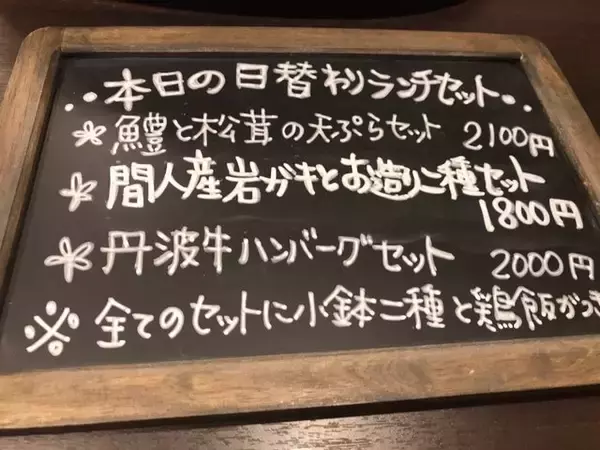 ..本日の日替わりランチセット..
*鱧と松茸の天ぷらセット 2100円
*間人産岩ガキとお造り二種セット
1800円
*丹波牛ハンバーグセット 2000円
※全てのセットに小鉢二種と鶏飯がつき